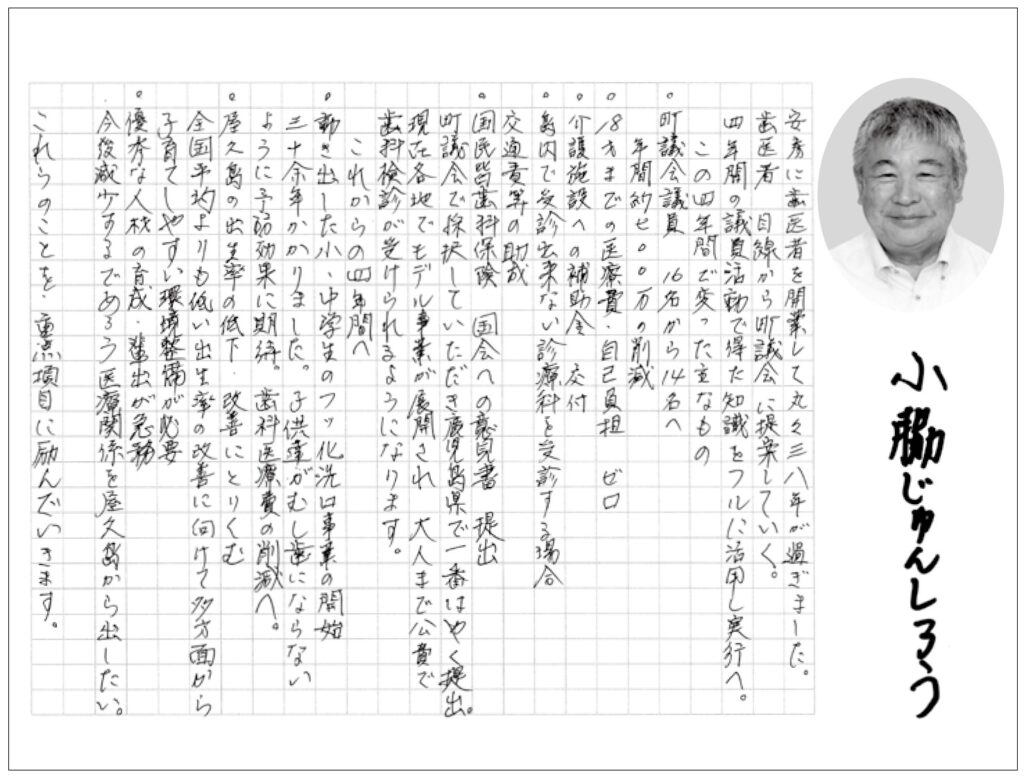 小脇じゅんしろう
安房に歯医者を開業して丸々三八年が過ぎました。
歯医者 目線から町議会 に提案していく。
四年間の議員活動で得た知識をフルに活用し実行へ。
この四年間で変った主なもの
。町議会議員 16名から14名へ
年間約七〇〇万の削減
。18才までの医療費・自己負担 ゼロ
。介護施設への補助金 交付
。島内で受診出来ない診療科を受診する場合
交通費等の助成
。国民皆歯科保険 国会への意見書 提出
町議会で採択していただき鹿児島県で一番はやく提出。
現在各地でモデル事業が展開され 大人まで公費で
歯科検診が受けられるようになります。
これからの四年間へ
。動き出した小、中学生のフッ化洗口事業の開始
三十余年かかりました。子供達がむし歯にならない
ように予防効果に期待。歯科医療費の削減へ。
。屋久島の出生率の低下・改善にとりくむ
全国平均よりも低い出生率の改善に向けて多方面から
子育てしやすい環境整備が必要
。優秀な人材の育成・輩出が急務
今後減少するであろう医療関係を屋久島から出したい。
これらのことを・重点項目に励んでいきます。